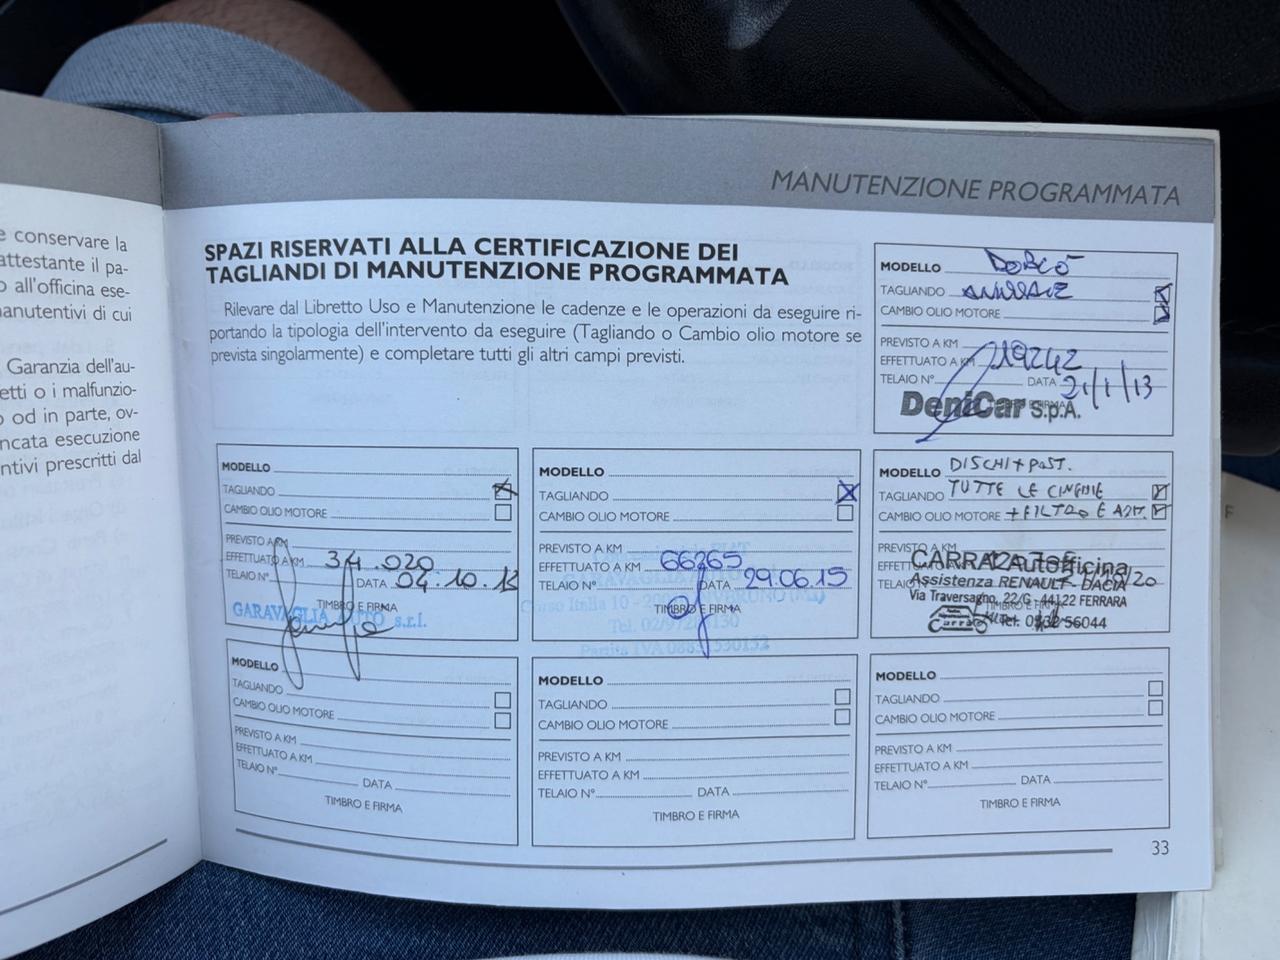 e conservare la
attestante il pa-
o all'officina ese-
anutentivi di cui
Garanzia dell'au-
etti o i malfunzio-
o od in parte, ov-
ncata esecuzione
ntivi prescritti dal
MANUTENZIONE PROGRAMMATA
SPAZI RISERVATI ALLA CERTIFICAZIONE DEI
TAGLIANDI DI MANUTENZIONE PROGRAMMATA
Rilevare dal Libretto Uso e Manutenzione le cadenze e le operazioni da eseguire ri-
portando la tipologia dell'intervento da eseguire (Tagliando o Cambio olio motore se
prevista singolarmente) e completare tutti gli altri campi previsti.
MODELLO
TAGLIANDO ANNUALE
CAMBIO OLIO MOTORE
PREVISTO A KM
EFFETTUATO A KM 19242
TELAIO N° DATA 21/1/13
TIMBRO E FIRMA
DeniCar S.p.A.
MODELLO
TAGLIANDO
CAMBIO OLIO MOTORE
PREVISTO A KM
EFFETTUATO A KM 34.020
TELAIO N° DATA 04.10.13
TIMBRO E FIRMA
GARAVAGLIA AUTO s.r.l.
MODELLO
TAGLIANDO
CAMBIO OLIO MOTORE
PREVISTO A KM
EFFETTUATO A KM 66265
TELAIO N° DATA 29.06.15
TIMBRO E FIRMA
GARAVAGLIA AUTO
Corso Italia 10
Tel.
Partita IVA
MODELLO DISCHI + PAST.
TAGLIANDO TUTTE LE CINGHIE
CAMBIO OLIO MOTORE + FILTRO E ABIT.
PREVISTO A KM
CARRA Autofficina
Assistenza RENAULT - DACIA
Via Traversagno, 22/G - 44122 FERRARA
Tel. 0532 56044
MODELLO
TAGLIANDO
CAMBIO OLIO MOTORE
PREVISTO A KM
EFFETTUATO A KM
TELAIO N° DATA
TIMBRO E FIRMA
MODELLO
TAGLIANDO
CAMBIO OLIO MOTORE
PREVISTO A KM
EFFETTUATO A KM
TELAIO N° DATA
TIMBRO E FIRMA
MODELLO
TAGLIANDO
CAMBIO OLIO MOTORE
PREVISTO A KM
EFFETTUATO A KM
TELAIO N° DATA
TIMBRO E FIRMA
33